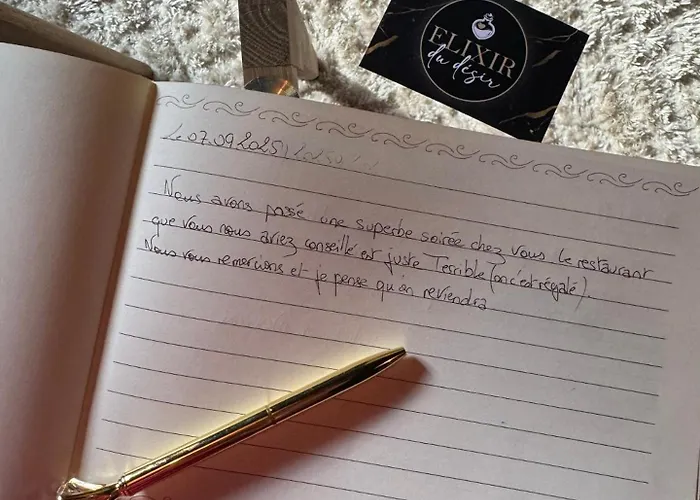 ELIXIR
du désir
Le 07.09.2025
Nous avons passé une superbe soirée chez vous le restaurant
que vous nous aviez conseillé est juste Terrible (on c'est régalé).
Nous vous remercions et je pense qu'on reviendra